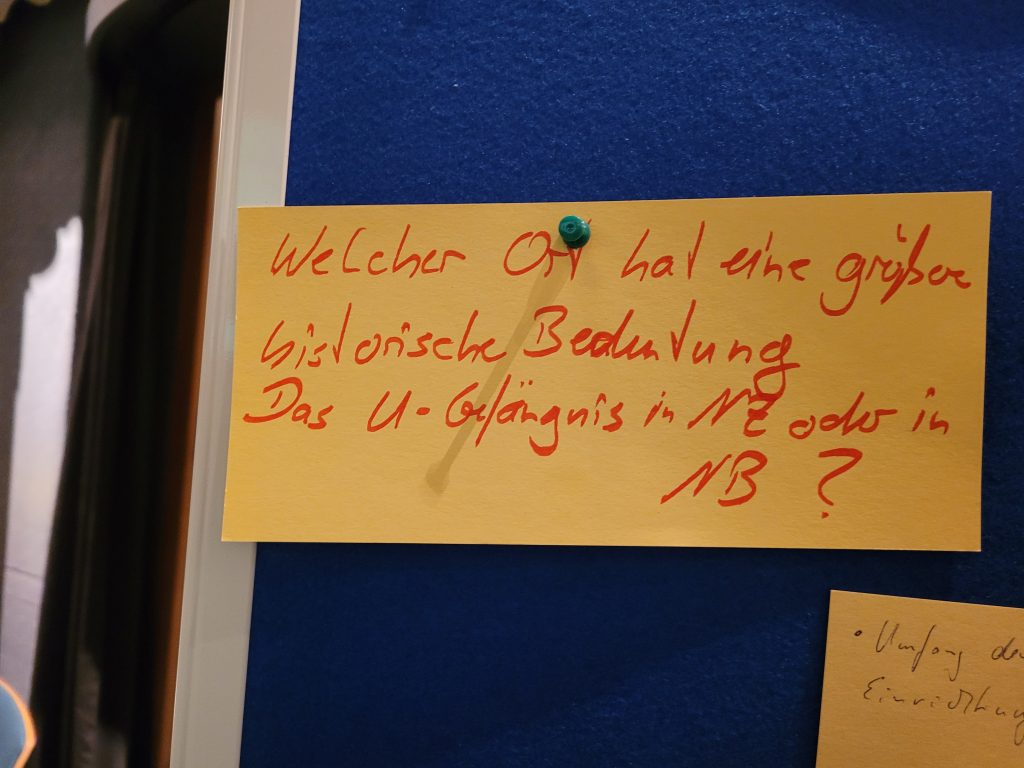 Welcher Ort hat eine größere
historische Bedeutung
Das U-Gefängnis in NZ oder in
NB ?
• Umfang der
Einrichtung